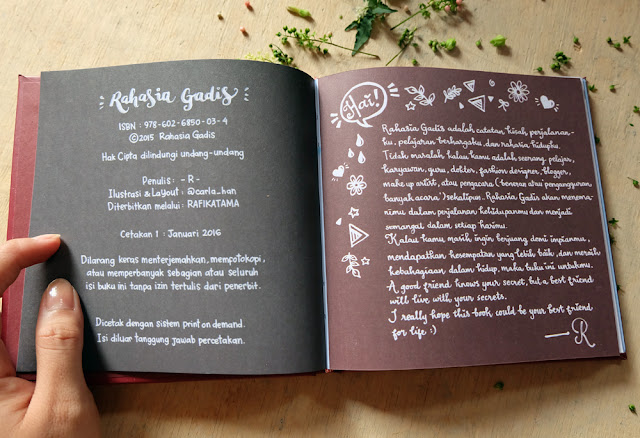 Rahasia Gadis
ISBN : 978-602-6850-03-4
©2015 Rahasia Gadis
Hak Cipta dilindungi undang-undang
Penulis : -R-
Ilustrasi & Layout : @carla_han
Diterbitkan melalui : RAFIKATAMA
Cetakan 1 : Januari 2016
Dilarang keras menterjemahkan, memfotokopi,
atau memperbanyak sebagian atau seluruh
isi buku ini tanpa izin tertulis dari penerbit.
Dicetak dengan sistem print on demand.
Isi diluar tanggung jawab percetakan.
Hai!
Rahasia Gadis adalah catatan, kisah, perjalanan-
ku, pelajaran berhargaku, dan rahasia hidupku.
Tidak masalah kalau kamu adalah seorang pelajar,
karyawan, guru, dokter, fashion designer, blogger,
make up artist, atau pengacara (
banyak acara) sekalipun. Rahasia Gadis akan menema-
nimu dalam perjalanan kehidupanmu dan menjadi
semangat dalam setiap harimu.
Kalau kamu masih ingin berjuang demi impianmu,
mendapatkan kesempatan yang lebih baik, dan meraih
kebahagiaan dalam hidup, maka buku ini untukmu.
A good friend knows your secret, but a best friend
will live with your secrets.
I really hope this book could be your best friend
for life :)
—R